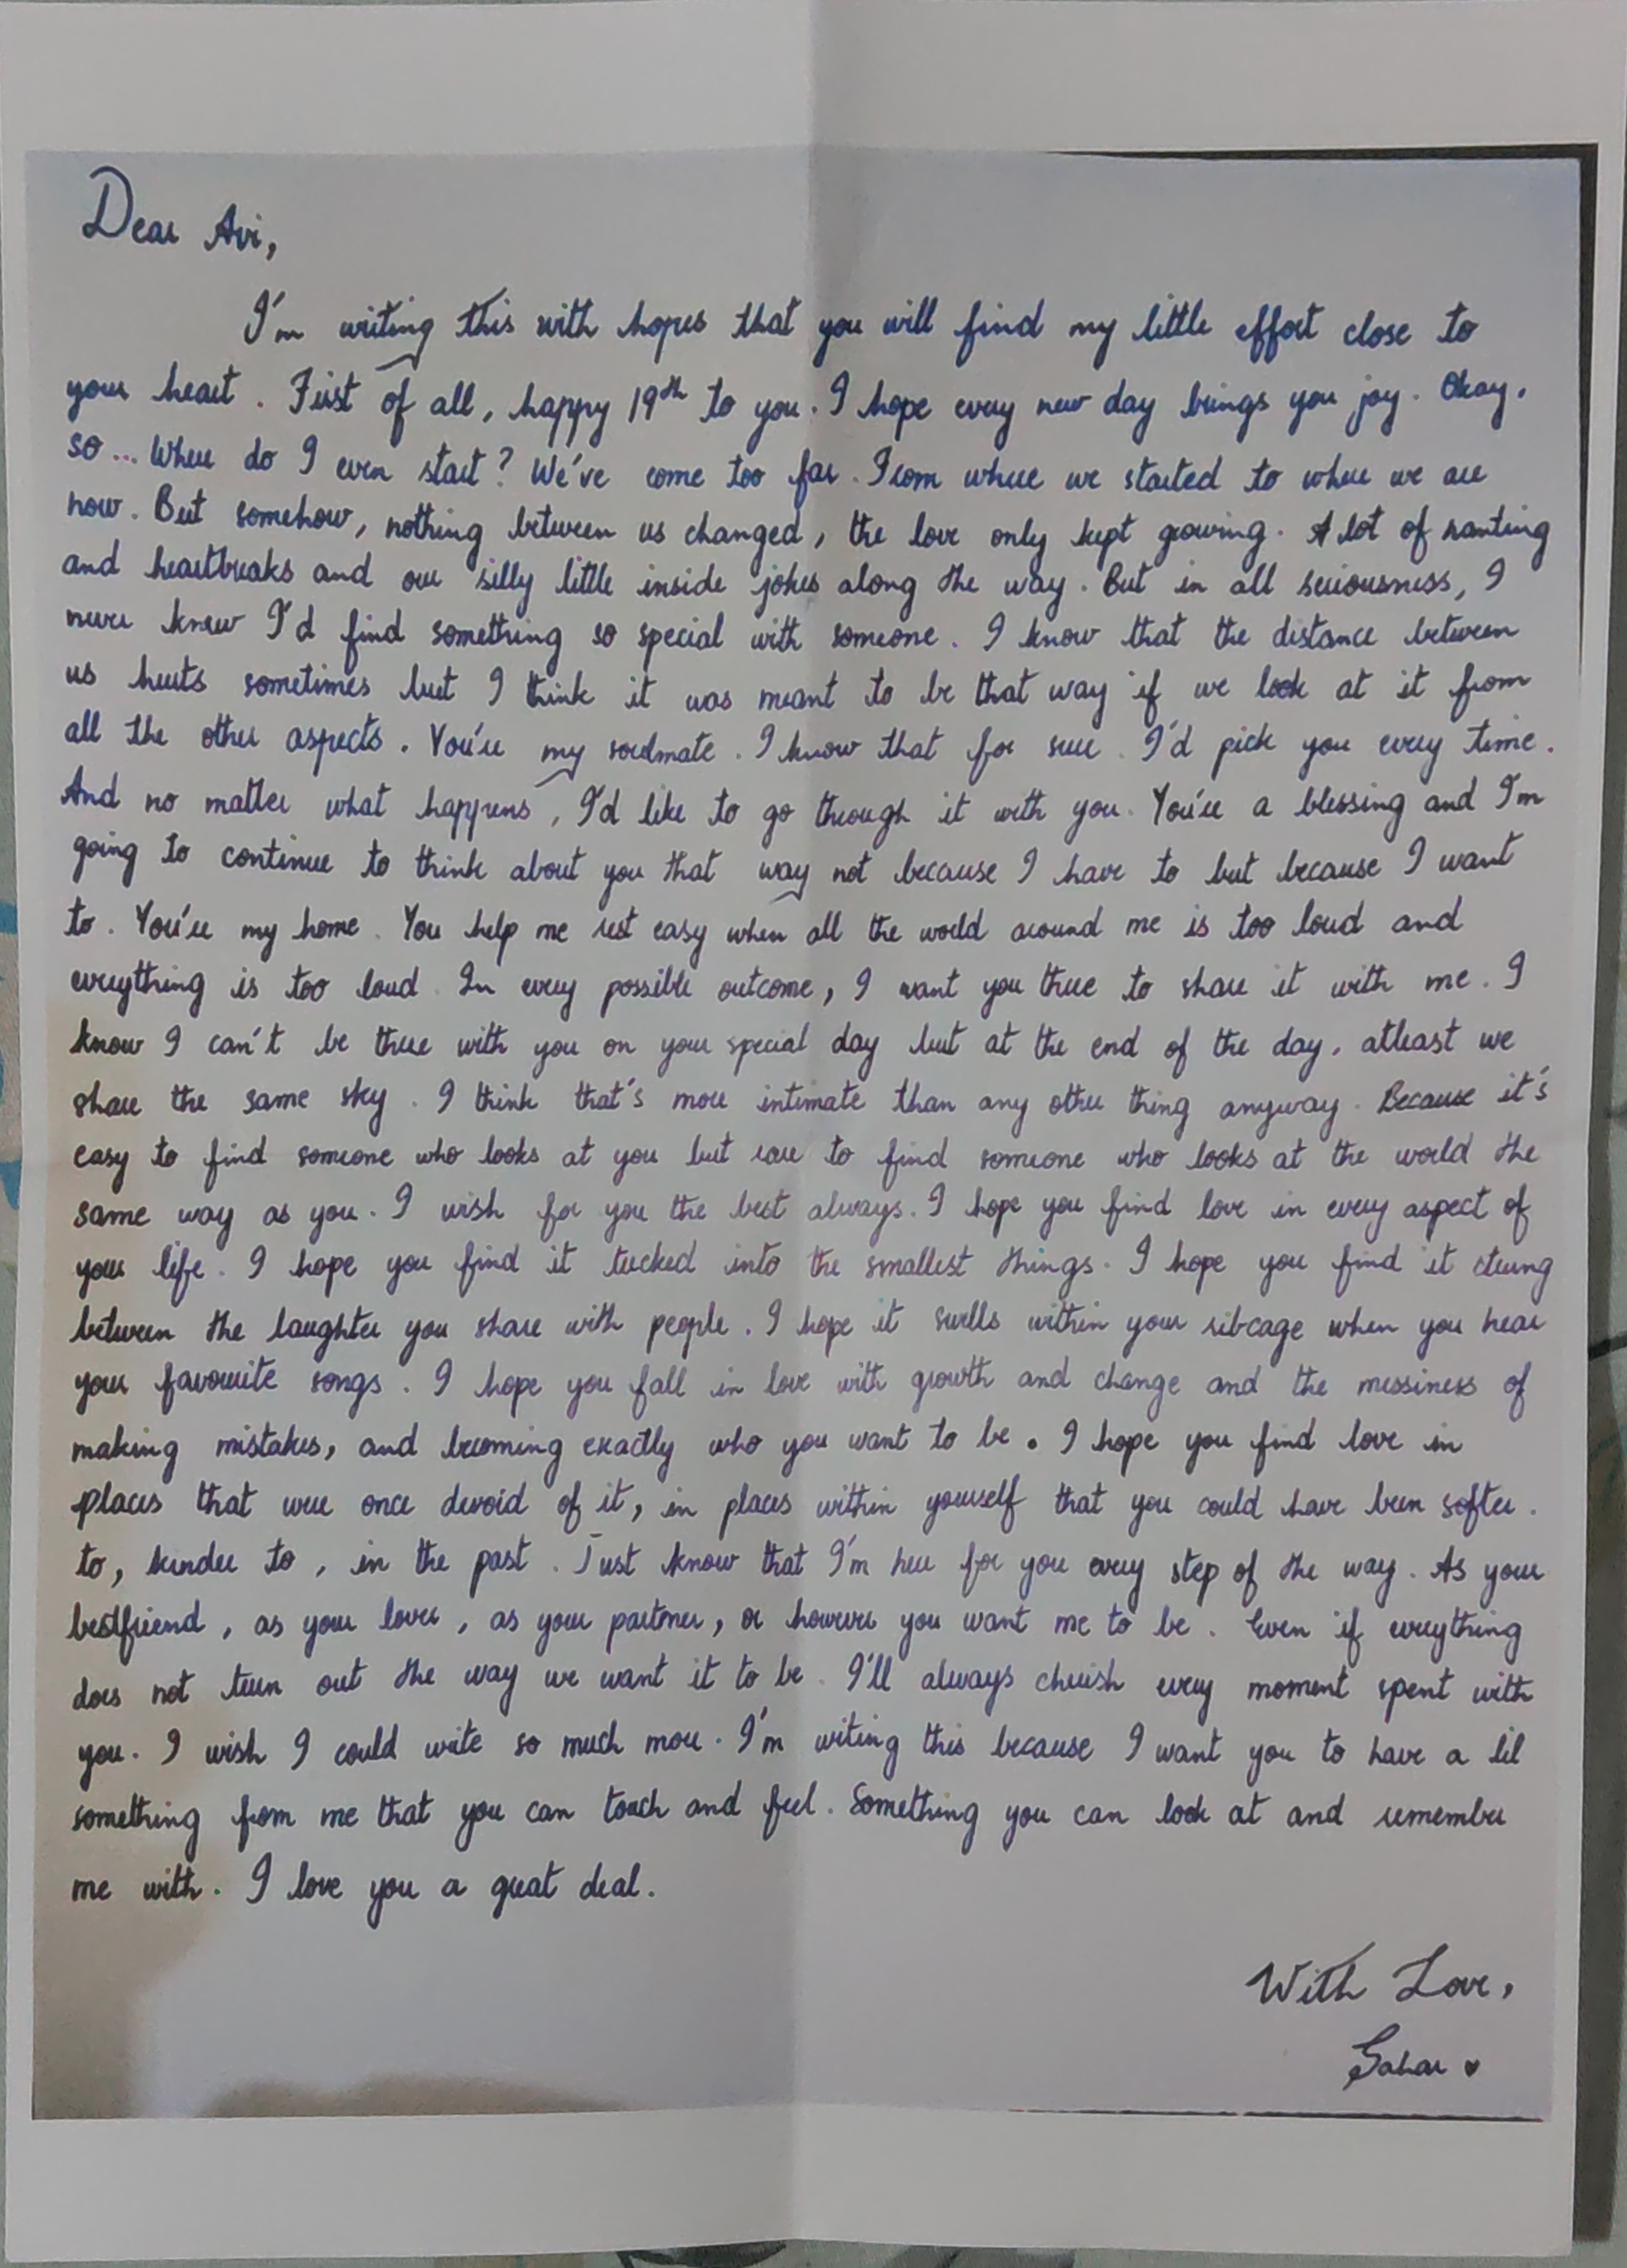 Dear Avi,
I'm writing this with hopes that you will find my little effort close to
your heart. First of all, happy 19th to you. I hope every new day brings you joy. Okay,
so... Where do I even start? We've come too far. From where we started to where we are
now. But somehow, nothing between us changed, the love only kept growing. A lot of ranting
and heartbreaks and our silly little inside jokes along the way. But in all seriousness, I
never knew I'd find something so special with someone. I know that the distance between
us hurts sometimes but I think it was meant to be that way if we look at it from
all the other aspects. You're my soulmate. I know that for sure. I'd pick you every time.
And no matter what happens, I'd like to go through it with you. You're a blessing and I'm
going to continue to think about you that way not because I have to but because I want
to. You're my home. You help me rest easy when all the world around me is too loud and
everything is too loud. In every possible outcome, I want you there to share it with me. I
know I can't be there with you on your special day but at the end of the day, atleast we
share the same sky. I think that's more intimate than any other thing anyway. Because it's
easy to find someone who looks at you but rare to find someone who looks at the world the
same way as you. I wish for you the best always. I hope you find love in every aspect of
your life. I hope you find it tucked into the smallest things. I hope you find it strung
between the laughter you share with people. I hope it swells within your ribcage when you hear
your favourite songs. I hope you fall in love with growth and change and the messiness of
making mistakes, and becoming exactly who you want to be. I hope you find love in
places that were once devoid of it, in places within yourself that you could have been softer.
to, kinder to, in the past. Just know that I'm here for you every step of the way. As your
bestfriend, as your lover, as your partner, or however you want me to be. Even if everything
does not turn out the way we want it to be. I'll always cherish every moment spent with
you. I wish I could write so much more. I'm writing this because I want you to have a lil
something from me that you can touch and feel. Something you can look at and remember
me with. I love you a great deal.
With Love,
Sahar ♥